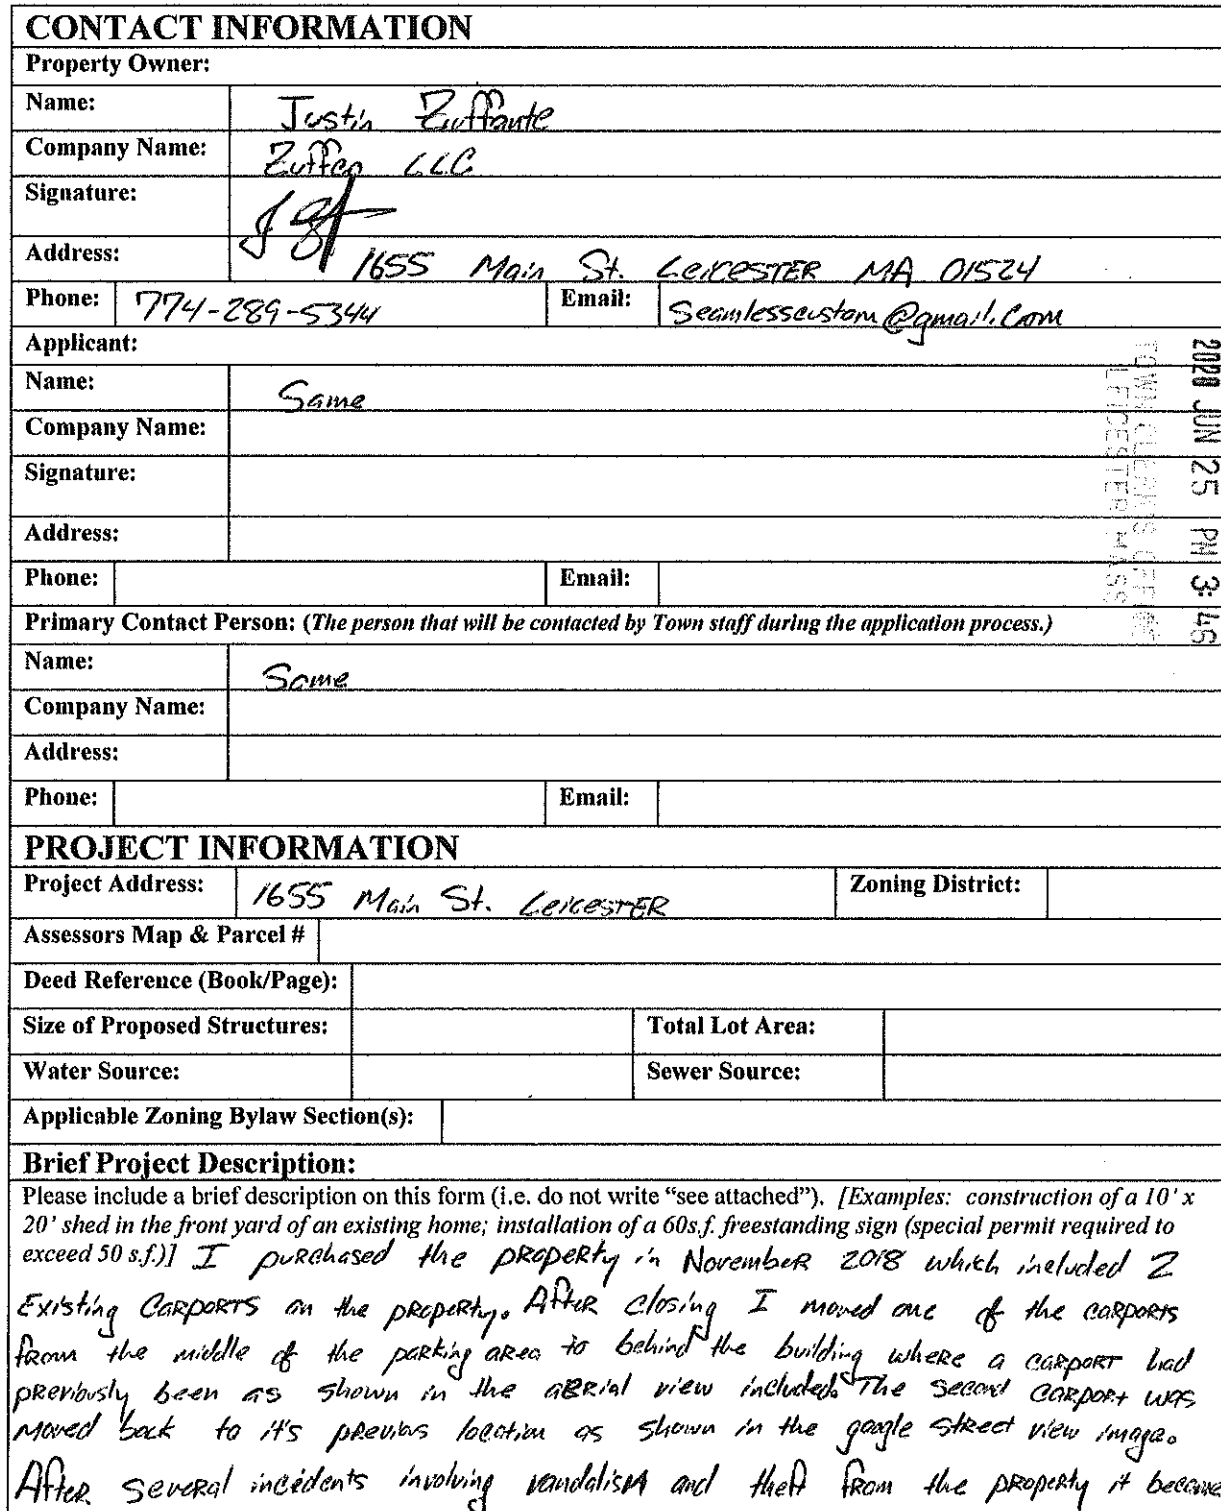 CONTACT INFORMATION
Property Owner:
Name: Justin Zuffante
Company Name: Zuffco LLC
Signature:
Address: 1655 Main St. Leicester MA 01524
Phone: 774-289-5344 Email: Seamlesscustom@gmail.com
Applicant:
Name: Same
Company Name:
Signature:
Address:
Phone: Email:
2020 JUN 25 PM 3:46
TOWN CLERK'S OFFICE
LEICESTER MASS
Primary Contact Person: (The person that will be contacted by Town staff during the application process.)
Name: Same
Company Name:
Address:
Phone: Email:
PROJECT INFORMATION
Project Address: 1655 Main St. Leicester Zoning District:
Assessors Map & Parcel #
Deed Reference (Book/Page):
Size of Proposed Structures: Total Lot Area:
Water Source: Sewer Source:
Applicable Zoning Bylaw Section(s):
Brief Project Description:
Please include a brief description on this form (i.e. do not write “see attached”). [Examples: construction of a 10' x
20' shed in the front yard of an existing home; installation of a 60s.f. freestanding sign (special permit required to
exceed 50 s.f.)] I purchased the property in November 2018 which included 2
Existing Carports on the property. After closing I moved one of the carports
from the middle of the parking area to behind the building where a carport had
previously been as shown in the aerial view included. The second carport was
moved back to it's previous location as shown in the google street view image.
After several incidents involving vandalism and theft from the property it became